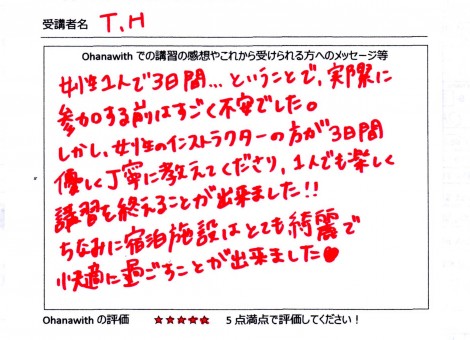 受講者名 T.H
Ohanawith での講習の感想やこれから受けられる方へのメッセージ等
女性1人で3日間…ということで、実際に
参加する前はすごく不安でした。
しかし、女性のインストラクターの方が3日間
優しく丁寧に教えてくださり、1人でも楽しく
講習を終えることが出来ました!!
ちなみに宿泊施設はとても綺麗で
快適に過ごすことが出来ました♥
Ohanawith の評価 ★★★★★ 5 点満点で評価してください！